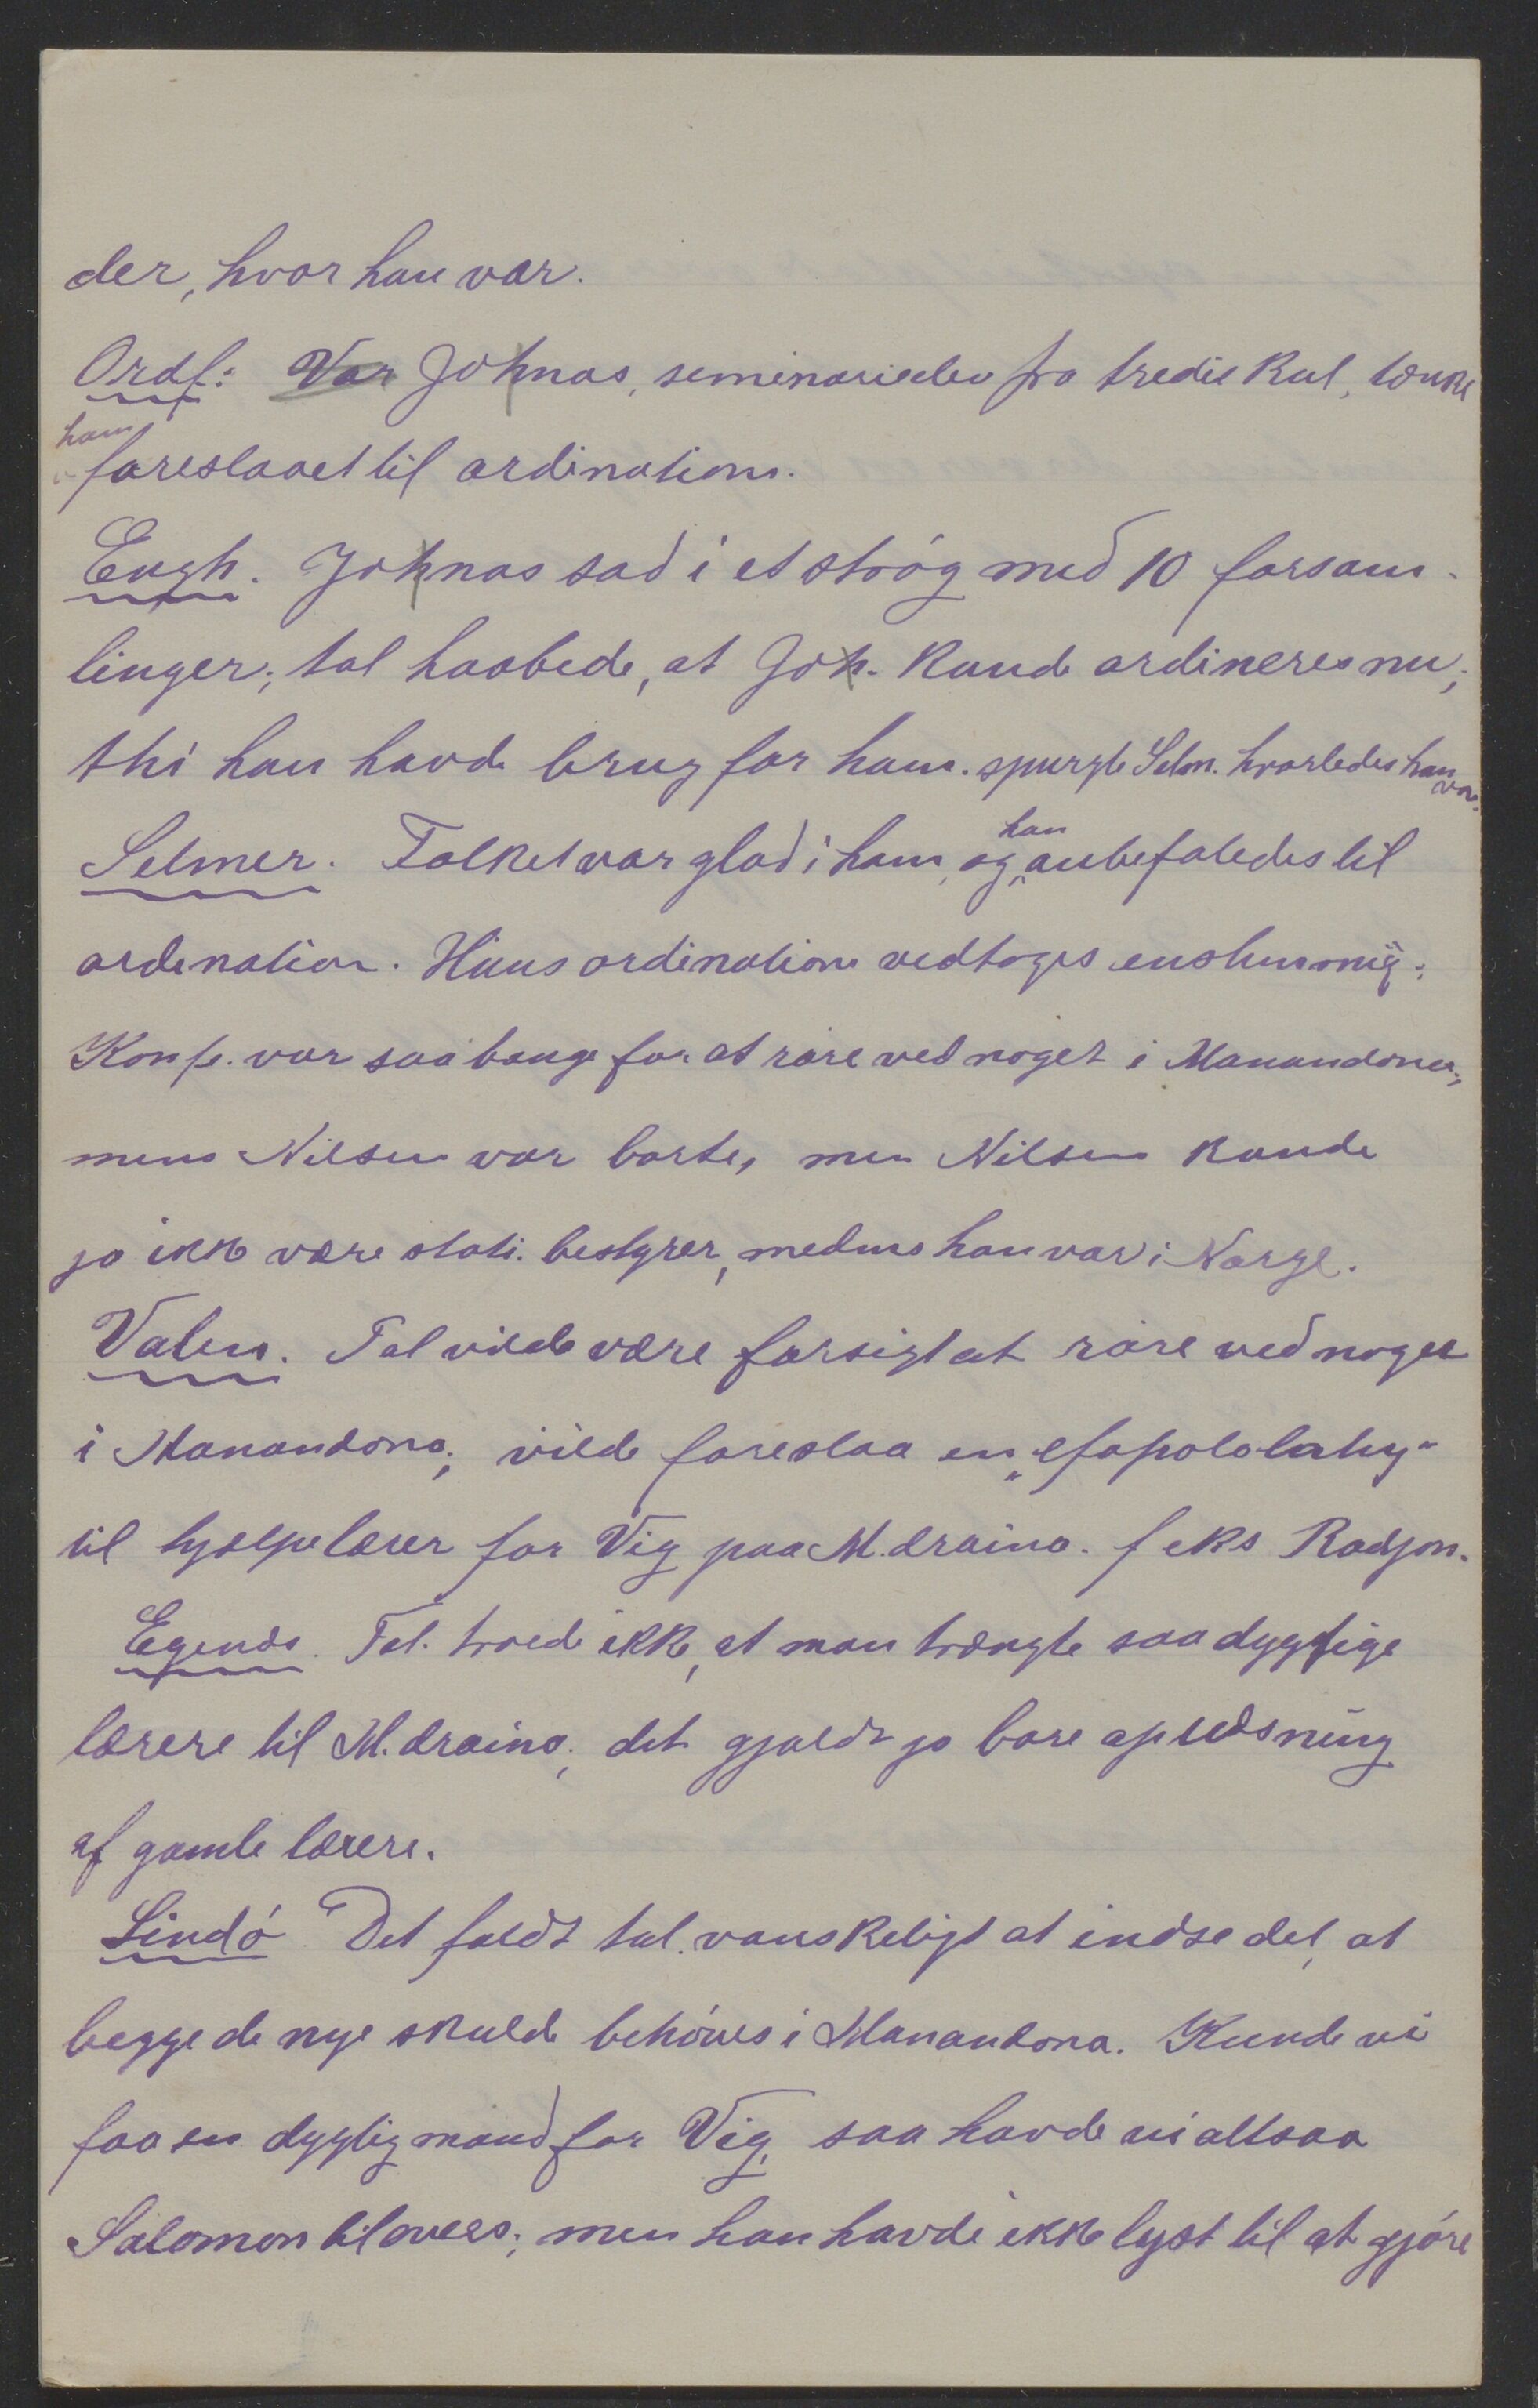 der, hvor han var.
Ordf: Var Johnas, seminarielev fra tredie kul, tænke
ham
foreslaaet til ordination.
Engh. Johnas sad i et strøg med 10 forsam-
linger; tal haabede, at Joh. kunde ordineres nu;
thi han havde brug for ham. spurgte Selm. hvorledes han var.
Selmer. Folket var glad i ham, og han anbefaledes til
ordination. Hans ordination vedtoges enstemmig.
Konf. var saa bange for at røre ved noget i Manandona,
mens Nilsen var borte, men Nilsen kunde
jo ikke være stati. bestyrer, medens han var i Norge.
Valen. Tal vilde være forsigt at røre ved noget
i Manandona; vilde foreslaa en "efapololahy"
til hjælpelærer for Vig paa M.draino. f eks Radjon.
Egenæs. Tal. troede ikke, at man trængte saa dygtige
lærere til M.draino; det gjaldt jo bare opladsning
af gamle lærere.
Lindø Det faldt tal. vanskeligt at indse det, at
begge de nye skulde behøves i Manandona. Kunde vi
faa en dygtig mand for Vig, saa havde vi altsaa
Salomon tilovers; men han havde ikke lyst til at gjøre